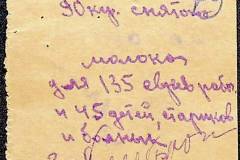 90 кр. снятого
молока
для 135 евреев рабоч.
и 45 детей, стариков
и больных